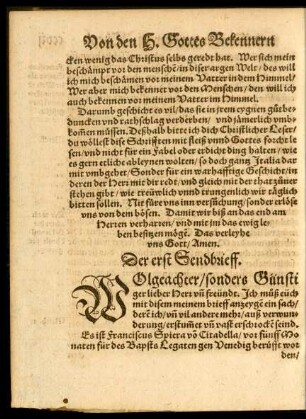 Von den H. Gottes Bekennern
cken wenig das Christus selbs geredt hat. Wer sich mein
beschämpt vor den menschē/ in diser argen Welt/ des will
ich mich beschämen vor meinem Vatter in dem Himmel/
Wer aber mich bekennet vor den Menschen/ den will ich
auch bekennen vor meinem Vatter im Himmel.
Darumb geschicht es vil/ das sie in jrem eygnen gůtbe⸗
duncken vnd rathschlag verderben/ vnd jämerlich vmb
kom̄en müssen. Deßhalb bitte ich dich Christlicher Leser/
du wöllest dise Schrifften mit fleiß vnnd Gottes forcht le
sen/ vnd nicht für ein Fabel oder erdicht ding halten/ wie
es gern etliche ableynen wolten/ so doch gantz Italia dar
mit vmbgehet/ Sonder für ein warhafftige Geschicht/ in
deren der Herr mit dir redt/ vnd gleich mit der that zůuer
stehen gibt/ wie trewlich vnnd trungenlich wir täglich
bitten sollen. Nit füre vns inn versůchung/ sonder erlöse
vns von dem bösen. Damit wir biß an das end am
Herren verharren/ vnd mit jm das ewig le
ben besitzen mögē. Das verleyhe
vns Gott/ Amen.
Der erst Sendbrieff.
WOlgeachter/ sonders Günsti
ger lieber Herr vn̄ freündt. Ich můß eüch
mit disem meinem brieff anzeygē ein sach/
derē ich/ vn̄ vil andere mehr/ auß verwun⸗
derung/ erstum̄et vn̄ vast erschrockē seind.
Es ist Franciscus Spiera vō Citadella/ vor fünff Mo
naten für des Bapsts Legaten gen Venedig berüfft wor
den/